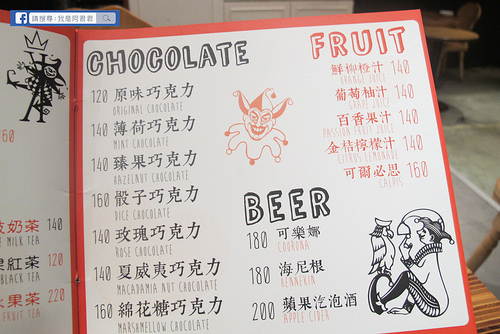 請搜尋:我是阿君君
60
技奶茶 140
MILK TEA
紅茶 120
BLACK TEA
水果茶 220
FRUIT TEA
CHOCOLATE
120 原味巧克力
ORIGINAL CHOCOLATE
140 薄荷巧克力
MINT CHOCOLATE
140 臻果巧克力
HAZELNUT CHOCOLATE
160 骰子巧克力
DICE CHOCOLATE
140 玫瑰巧克力
ROSE CHOCOLATE
140 夏威夷巧克力
MACADAMIA NUT CHOCOLATE
160 綿花糖巧克力
MARSHMELLOW CHOCOLATE
FRUIT
鮮柳橙汁 140
ORANGE JUICE
葡萄柚汁 140
GRAPE JUICE
百香果汁 140
PASSION FRUIT JUICE
金桔檸檬汁 140
CITRUS LEMONADE
可爾必思 160
CALPIS
BEER
180 可樂娜
COORONA
180 海尼根
HENNEKIN
200 蘋果汽泡酒
APPLE CIDER